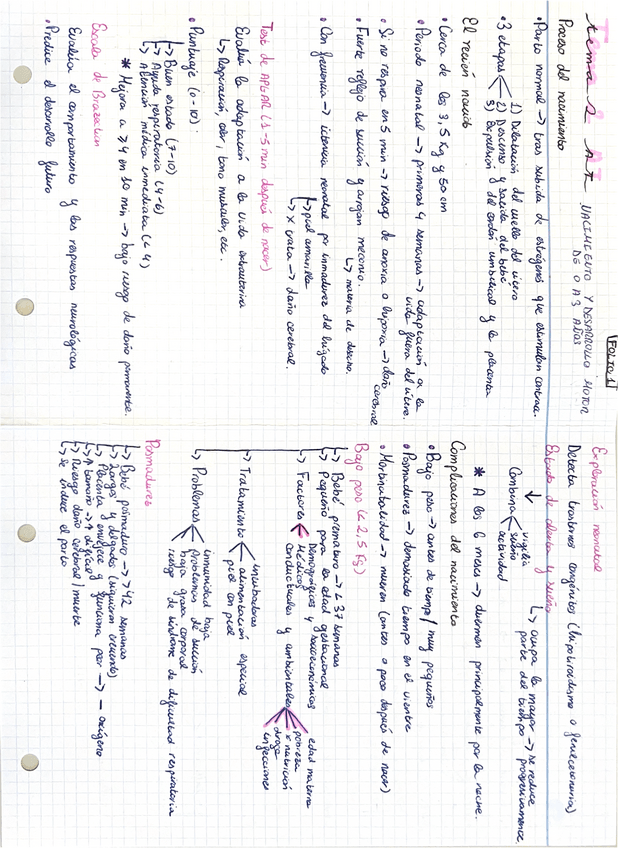 FOLIO 1
tema 2 AT NACIMIENTO Y DESARROLLO MOTOR
DE 0 A 3 AÑOS
Proceso del nacimiento
• Parto normal → tras subida de estrógenos que estimulan contrac.
• 3 etapas
1) Dilatación del cuello del útero
2) Descenso y salida del bebé
3) Expulsión del cordón umbilical y la placenta
El recién nacido
• Cerca de los 3,5 Kg y 50 cm
• Periodo neonatal → primeras 4 semanas → adaptación a la
vida fuera del útero.
• Si no respira en 5 min → riesgo de anoxia o hipoxia → daño
cerebral
• Fuerte reflejo de succión y arrojan meconio.
↳ materia de desecho.
• Con frecuencia → ictericia neonatal por inmadurez del hígado
↳ piel amarilla
↳ x trata → daño cerebral.
Test de APGAR (1-5 min después de nacer)
Evalúa la adaptación a la vida extrauterina
↳ Respiración, color, tono muscular, etc.
• Puntuaje (0-10):
↳ Buen estado (7-10)
↳ Ayuda respiratoria (4-6)
↳ Atención médica inmediata (< 4)
* Mejora a > 4 en 10 min → bajo riesgo de daño permanente.
Escala de Brazelton
Evalúa el comportamiento y las respuestas neurológicas
• Predice el desarrollo futuro
Exploración neonatal
Detecta trastornos congénitos (hipotiroidismo o fenilcetonuria)
Estado de alerta y sueño
↳ ocupa la mayor → se reduce
parte del tiempo progresivamente.
Combina
vigilia
sueño
actividad
* A los 6 meses → duermen principalmente por la noche.
Complicaciones del nacimiento
• Bajo peso → antes de tiempo / muy pequeños
• Posmadurez → demasiado tiempo en el vientre
• Mortinatalidad → mueren (antes o poco después de nacer)
Bajo peso (< 2,5 Kg)
↳ Bebé prematuro → < 37 semanas
Pequeño para la edad gestacional
↳ Factores
Demográficos y socioeconómicos
Médicos
conductuales y ambientales
edad materna
pobreza
x nutrición
droga
infecciones
↳ Tratamiento
incubadoras
alimentación especial
piel con piel
↳ Problemas
inmunidad baja
problemas de succión
baja grasa corporal
riesgo de síndrome de dificultad respiratoria
Posmadurez
↳ Bebé posmaduro → > 42 semanas
↳ Largos y delgados (siguieron creciendo)
↳ Placenta envejece y funciona peor → - oxígeno
↳ ↑ tamaño → ↑ difícil
↳ Riesgo daño cerebral / muerte
↳ Se induce el parto